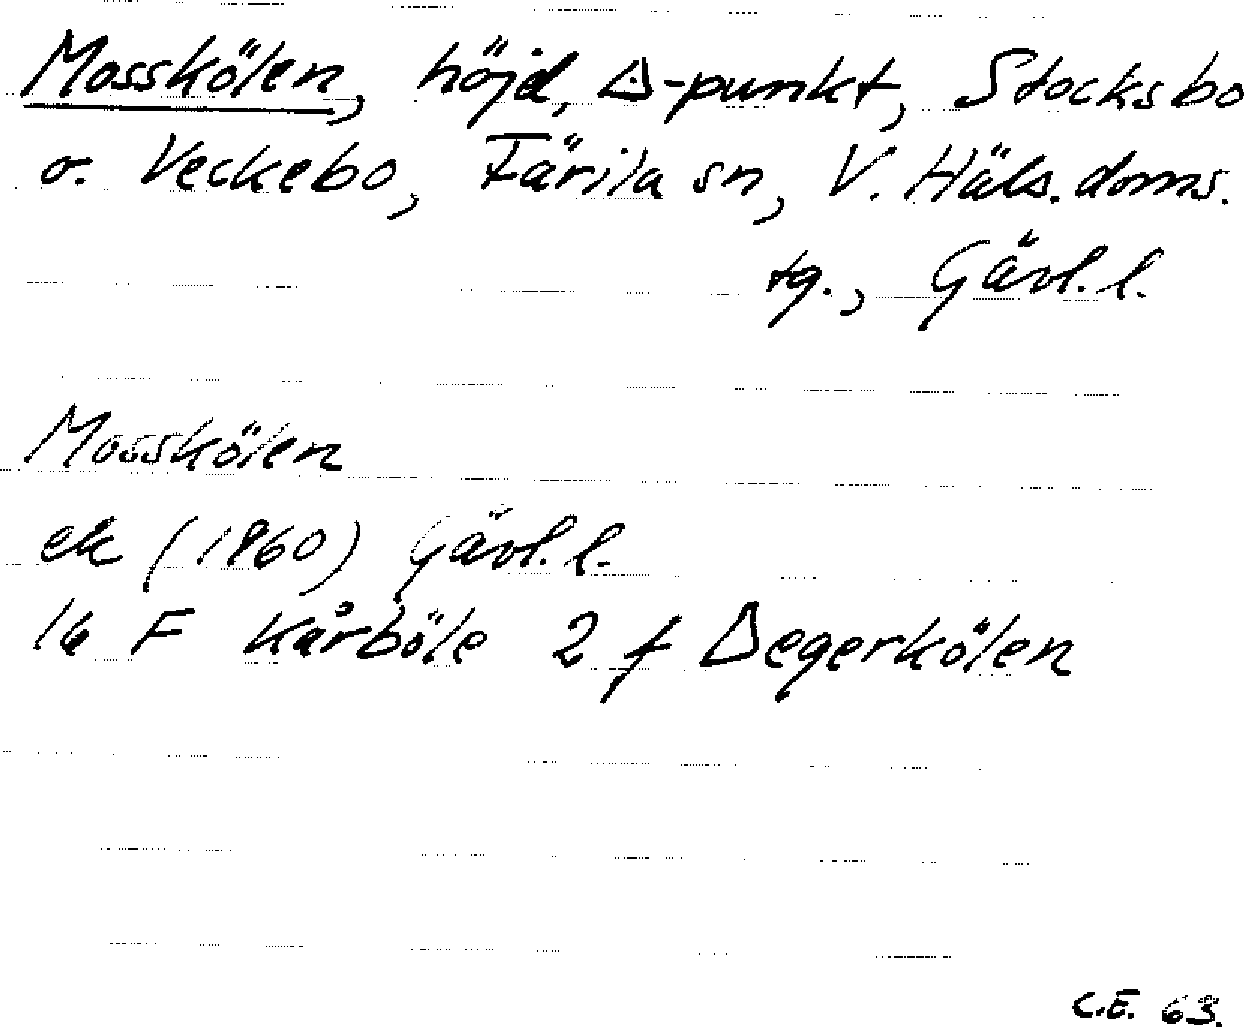 Mosskölen, höjd, Δ-punkt, Stocksbo
o. Veckebo, Färila sn, V. Häls. doms.
tg., Gävl. l.
Mosskölen
ek (1960) Gävl. l.
16 F Kårböle 2 f Degerkölen
C.E. 63.